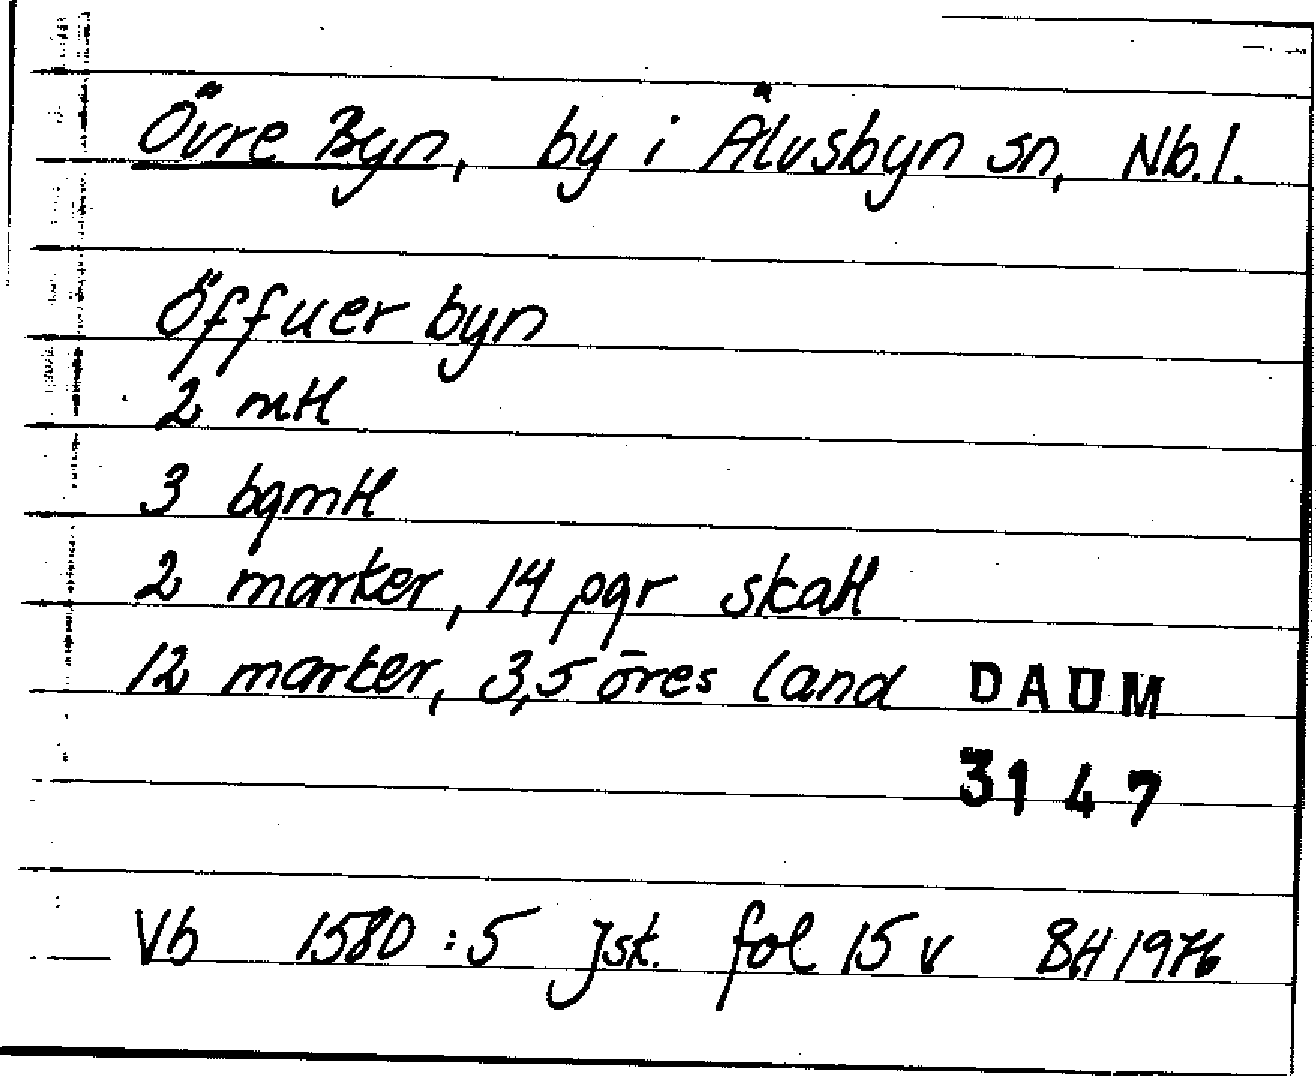 Övre Byn, by i Älvsbyn sn, Nb.l.
Öffuer byn
2 mtl
3 bgmtl
2 marker, 14 pgr skatt
12 marker, 3,5 öres land DAUM
3147
Vb 1580:5 Jsk. fol 15 v BH 1976